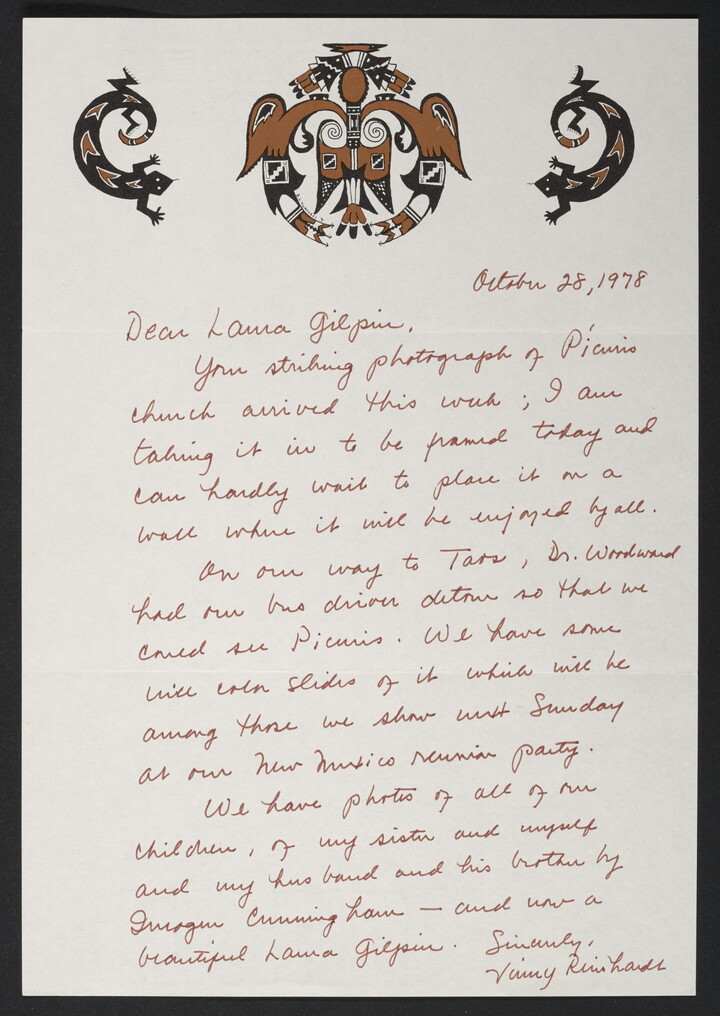 October 28, 1978
Dear Laura Gilpin,
Your striking photograph of Picuris
church arrived this week; I am
taking it in to be framed today and
can hardly wait to place it on a
wall where it will be enjoyed by all.
On our way to Taos, Dr. Woodward
had our bus driver detour so that we
could see Picuris. We have some
nice color slides of it which will be
among those we show next Sunday
at our New Mexico reunion party.
We have photos of all of our
children, of my sister and myself
and my husband and his brother by
Imogen Cunningham — and now a
beautiful Laura Gilpin. Sincerely,
Reinhardt